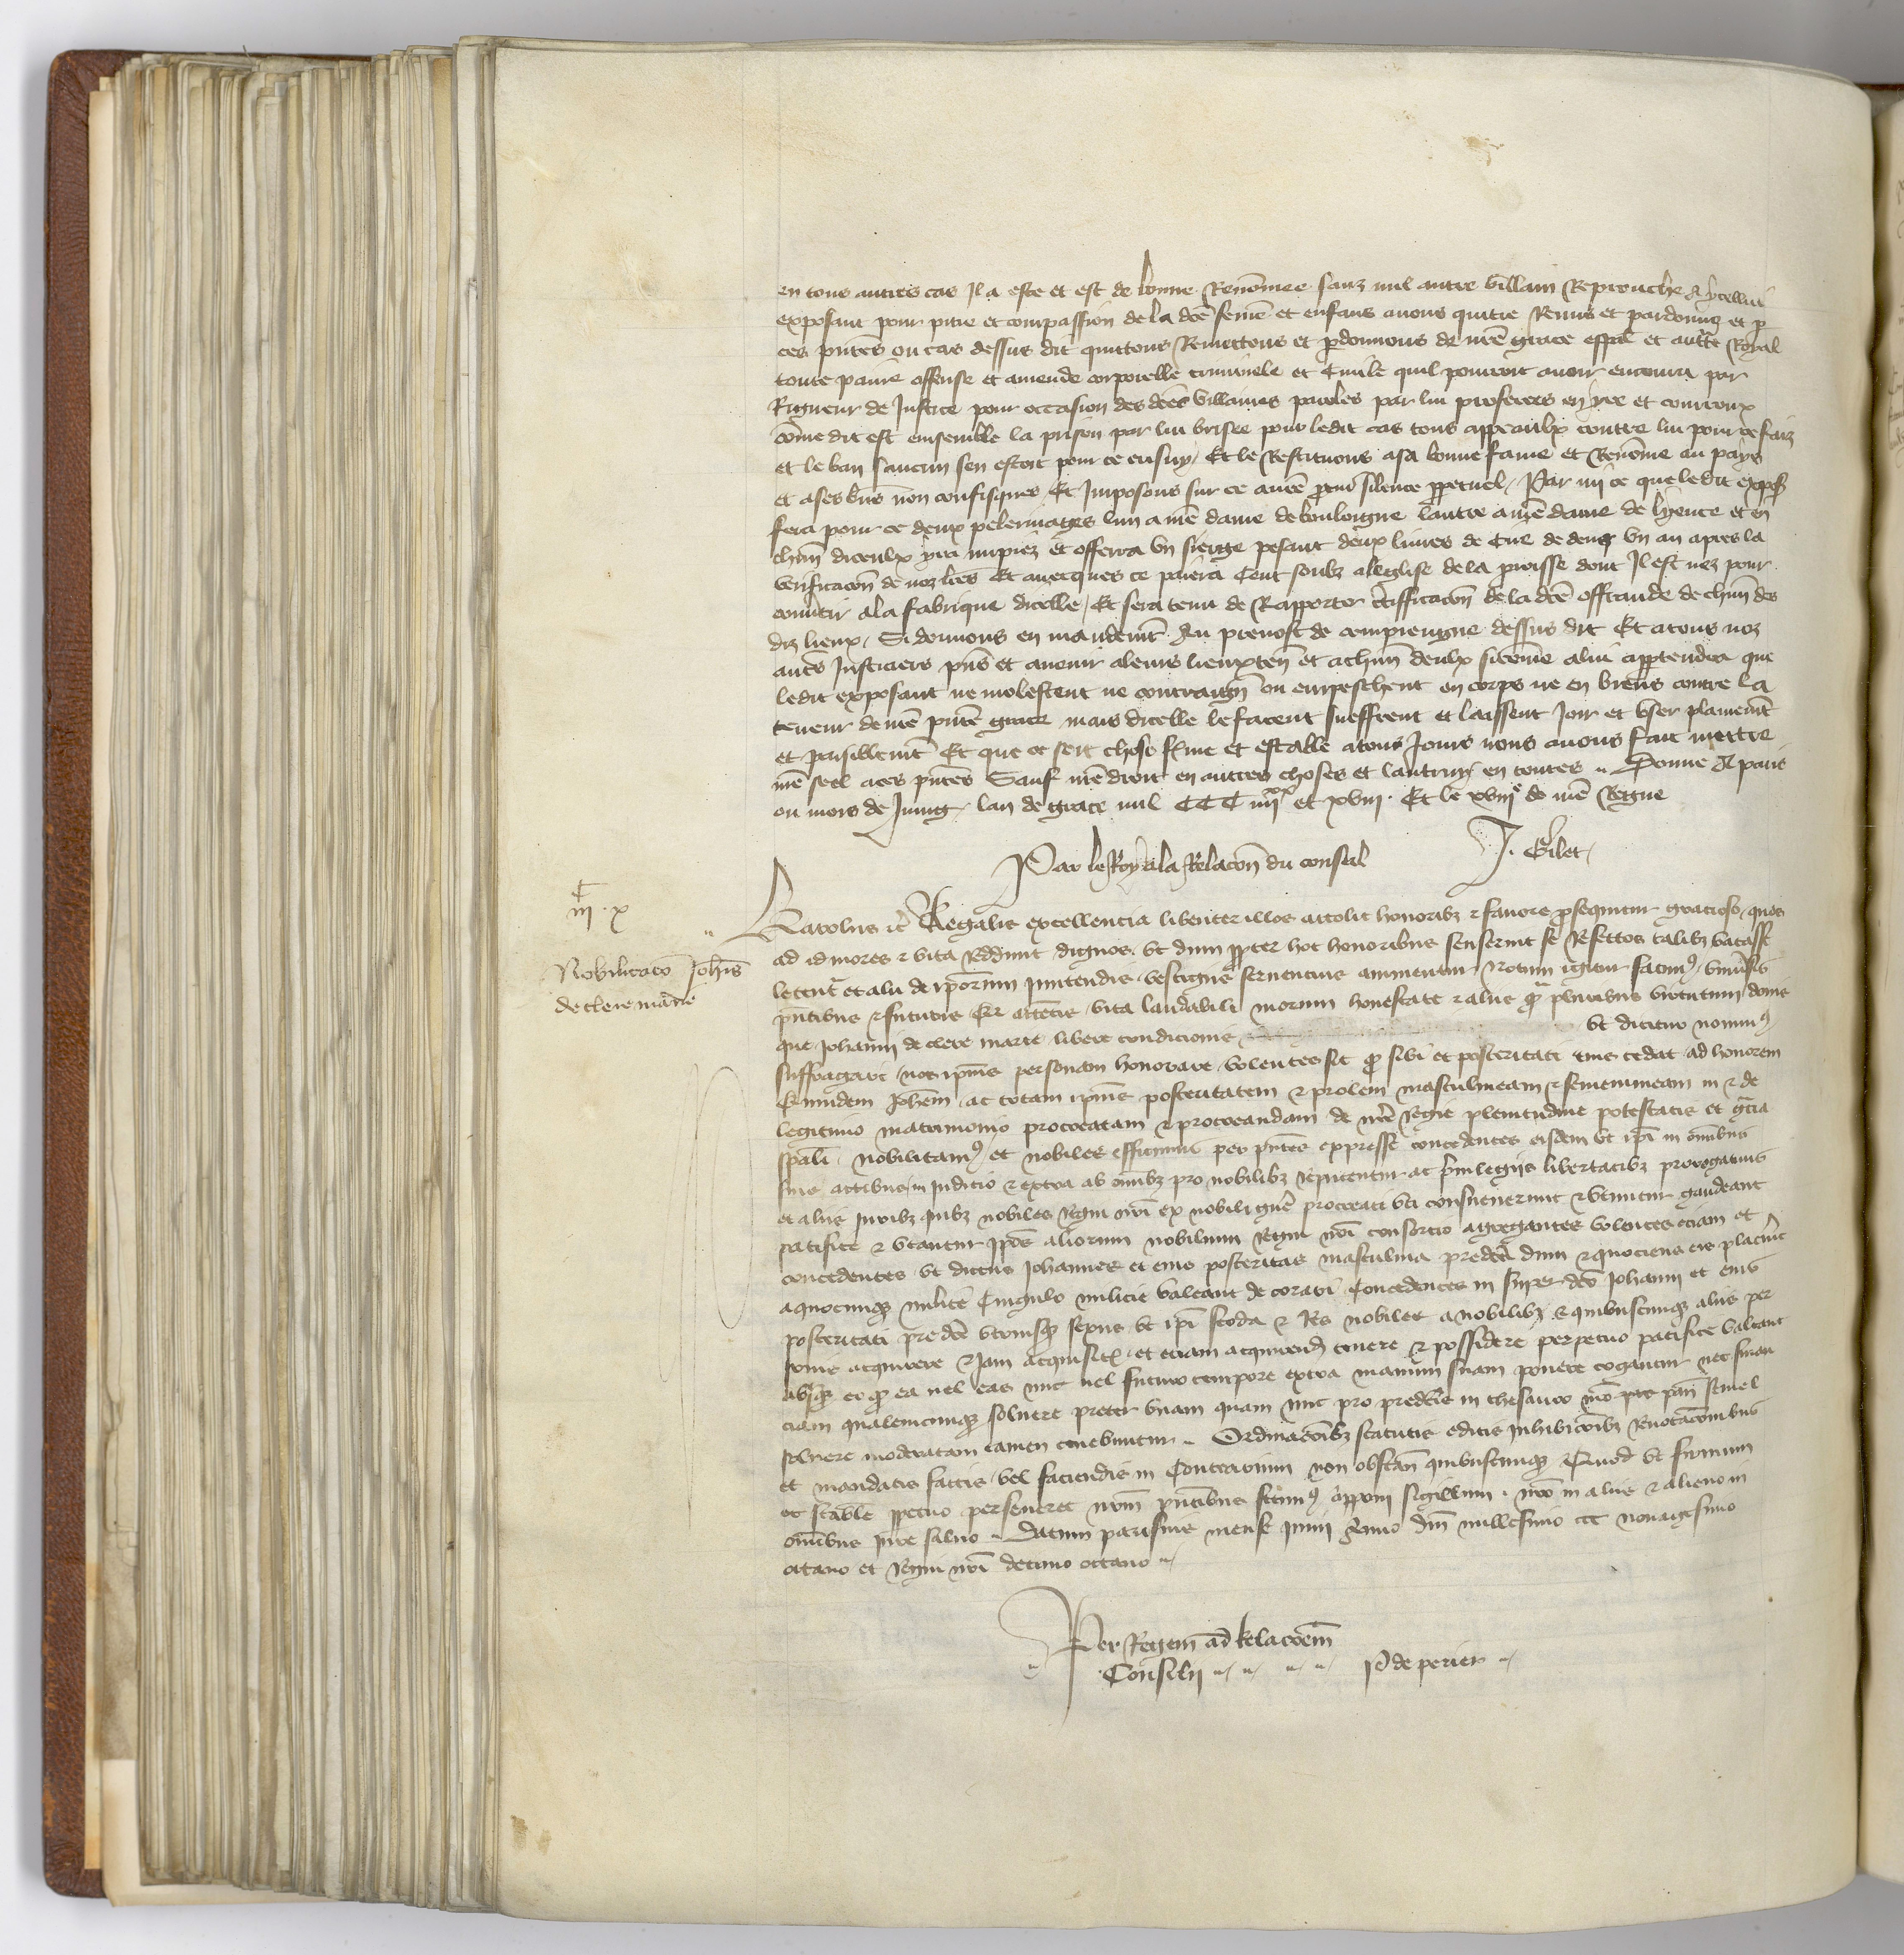 en tous autres cas Il a este et est de bonne Renōmee sanz nul autre villain Reprouche A ycellui
exposant pour pitie et compassion de la dcē femē et enfans auons quitie Remis et pardonnez et p
ces pūtes ou cas dessus dit quittons Remettons et pdonnons de nrē grace espāl et auctte Royal
toute paine offense et amende corporelle criminele et Ciuile quil pourroit auoir encouru par
Rigueur de Justice pour occasion des dcēs villaines paroles par lui proferees en yre et courroux
cōme dit est ensemble la prison par lui brisee pour ledit cas tous appeaulx contre lui pour ce faiz
et le ban saucun sen estoit pour ce ensuy Et le Restituons a sa bonne fame et Renōme au pays
et a ses biēs non confisques Et Imposons sur ce a nrē procur silence ppetuel Par mi ce que ledit expos
fera pour ce deux pelerinages lun a nrē dame de bouloigne lautre a nrē dame de lyence et en
chūn diceulx yra nupiez et offerra vn sierge pesant deux liures de Cire dedenz vn an apres la
verificacōn de noz lrēs Et auecques ce paiera Cent solz a leglise de la proisse dont Il est nez pour
conuertir a la fabrique dicelle Et sera tenu de Rapporter certifficacōn de la dcē offrande de chūn des
diz lieux Si donnons en mandemt Au preuost de compiengne dessus dit Et a tous noz
autēs Justiciers pñs et auenir a leurs lieuxteñ et a chūn deulx si cōme a lui apptendra que
ledit exposant ne molestent ne contraigñ ou empeschent en corps ne en biens contre la
teneur de nrē pñte grace mais dicelle le facent sueffrent et laissent Joir et vser plainemt
et paisiblemt Et que ce soit chose ferme et estable a tous Jours nous auons fait mettre
nrē seel a ces pñtes Sauf nrē droit en autres choses et lautruy en toutes Donne A paris
ou mois de Juing lan de grace mil CCC iiiixx et xviii Et le xviiie de nrē Regne
Par le Roy a la Relacōn du conseil J. Gilet
C
iii. x
Nobilitacō Johīs
de clere marie
Karolus &c Regalis excellentia libenter illos attolit honoribz & fauore prosequitur gracioso quos
ad id mores & vita reddunt dignos vt dum ppter hoc honoribus senserint se Refettos talibz vacasse
letentr et alii de ipōrum imitendis vestigiis feruencius animentur Notum igitur facim9 vniūsis
pñtibus & futuris Qr attētis vita laudabili morum honestate & aliis qm pluribus virtutum donis
que Johanni de clere marie libere condicionis vt dicitur nouim9
suffragari nos ipīus personam honorare volentes sic q sibi et posteritati eius cedat ad honorem
Eundem Johēm ac totam ipīus posteritatem & prolem masculineam & femenineam in & de
legitimo matrimonio procreatam & procreandam de nrē regie plenitudine potestatis et grā
spāli nobilitam9 et nobiles efficimus per pñtes expresse concedentes eisdem vt ipī in ōnibus
suis actibus in Judicio & extra ab ōnibz pro nobilibz reputentur ac priuilegiis libertatibz prerogatiuis
et aliis Juribz quibz nobiles regni nrī ex nobili genēr procreati vti consueuerunt & vtuntur gaudeant
pacifice & vtantur Ipōs aliorum nobilium regni nrī consortio aggregantes volentes eciam et
concedentes vt dictus Johannes et eius posteritas masculina predcā dum & quociens eis placuit
a quocunqz milite Cingulo milicie valeant decorari Concedentes in super dcō Johanni et eius
posteritati predcē vtriusqz sexus vt ipī feoda & Res nobiles a nobilibz & quibuscunqz aliis per
sonis acquirere & Jam acquisitas et eciam acquirendas tenere & possidere perpetuo pacifice valeant
absqz eo q ea uel eas nūc uel futuro tempore extra manum suam ponere cogantur nec finan
ciam qualemcunqz soluere preter vnam quam nūc pro predcīs in thesauro nrō par semel
soluere moderatam tamen tenebuntur Ordinacōibz statutis editis Inhibicōibz Reuocacōnibus
et mandatis factis vel faciendis in Contrarium non obstāñ quibuscunqz Quod vt firmum
et stabile ppetuo perseueret nrm pñtibus fecim9 apponi sigillum nrō in aliis & alieno in
ōnibus Jure saluo Datum parisius mense Junii Anno dñi millesimo ccc nonagesimo
octauo et Regni nrī decimo octauo
Per Regem ad Relacōem
Consilii P de perier